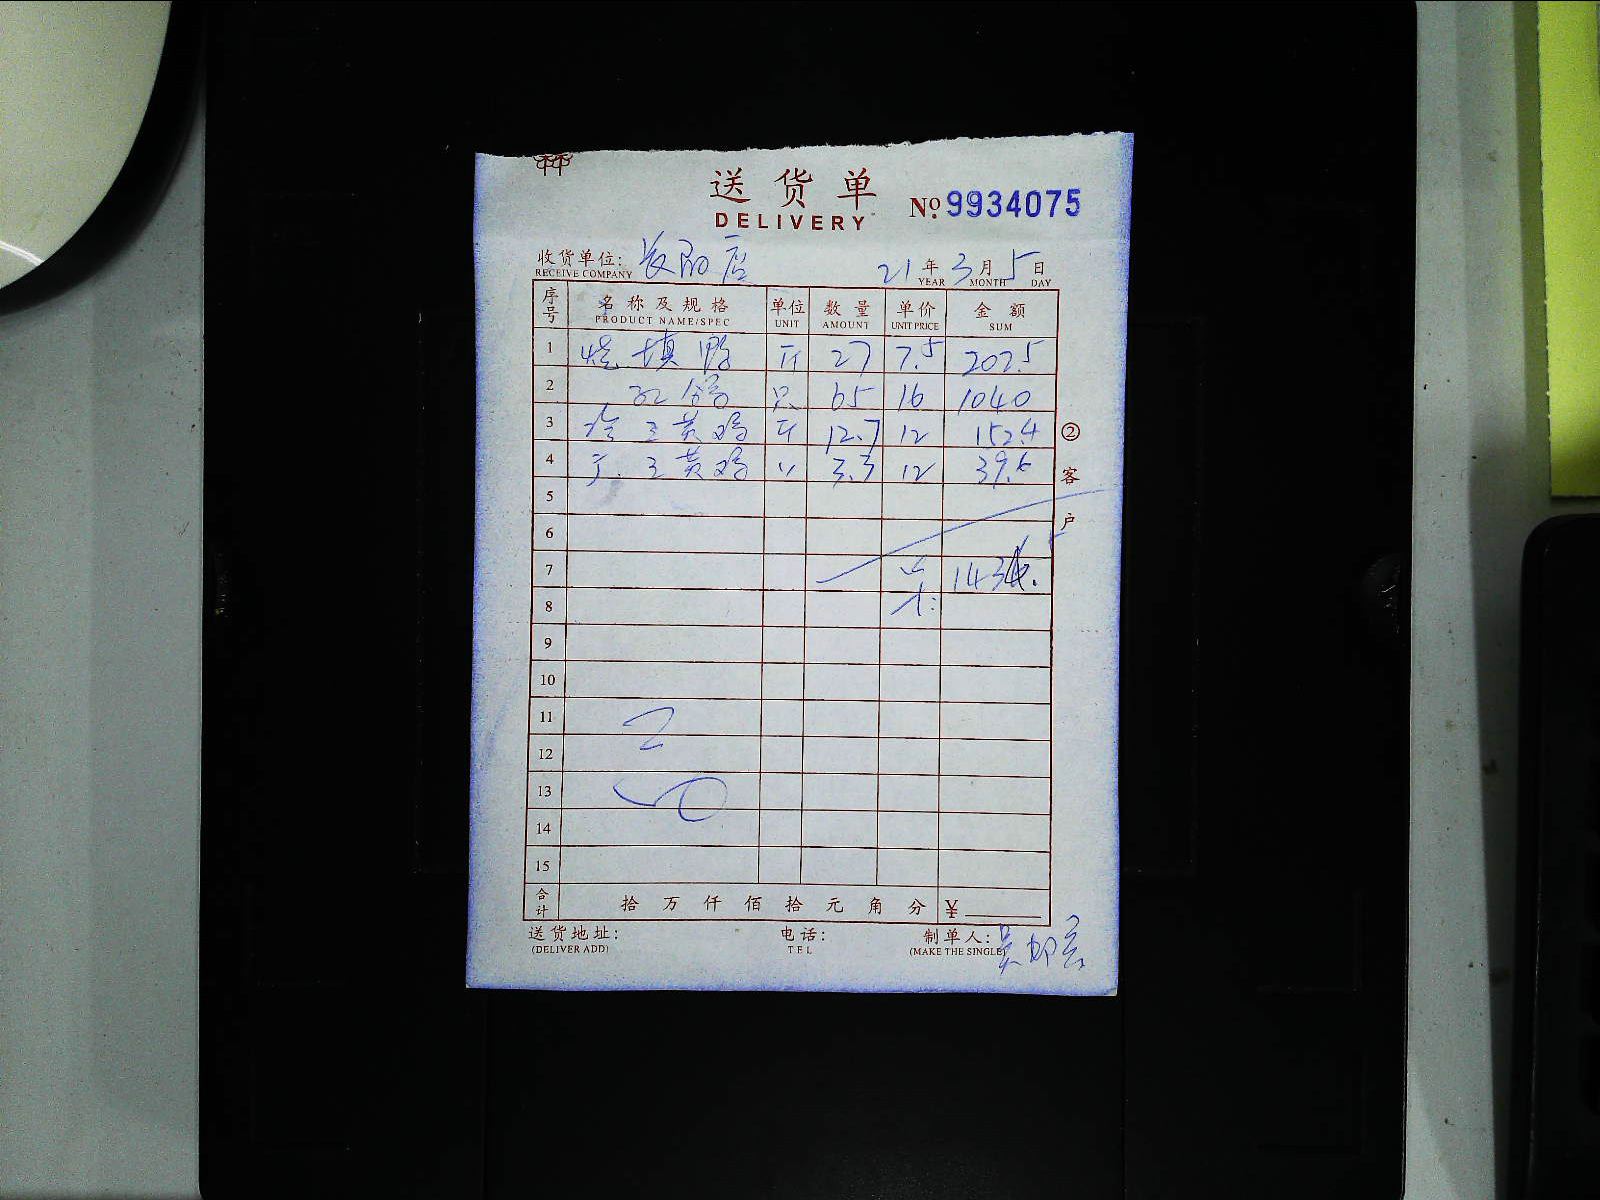 送货单
DELIVERY
№ 9934075
收货单位: 长阳店 21年3月5日
RECEIVE COMPANY YEAR MONTH DAY
序号 名称及规格 单位 数量 单价 金额
PRODUCT NAME/SPEC UNIT AMOUNT UNIT PRICE SUM
1 填鸭 斤 27 7.5 202.5
2 只 65 16 1040
3 三黄鸡 斤 12.7 12 152.4
4 三黄鸡 〃 3.3 12 39.6
5
6
7 143
8
9
10
11 2
12
13
14
15
合计 拾 万 仟 佰 拾 元 角 分 ¥
② 客户
送货地址: 电话: 制单人:
(DELIVER ADD) TEL (MAKE THE SINGLE)